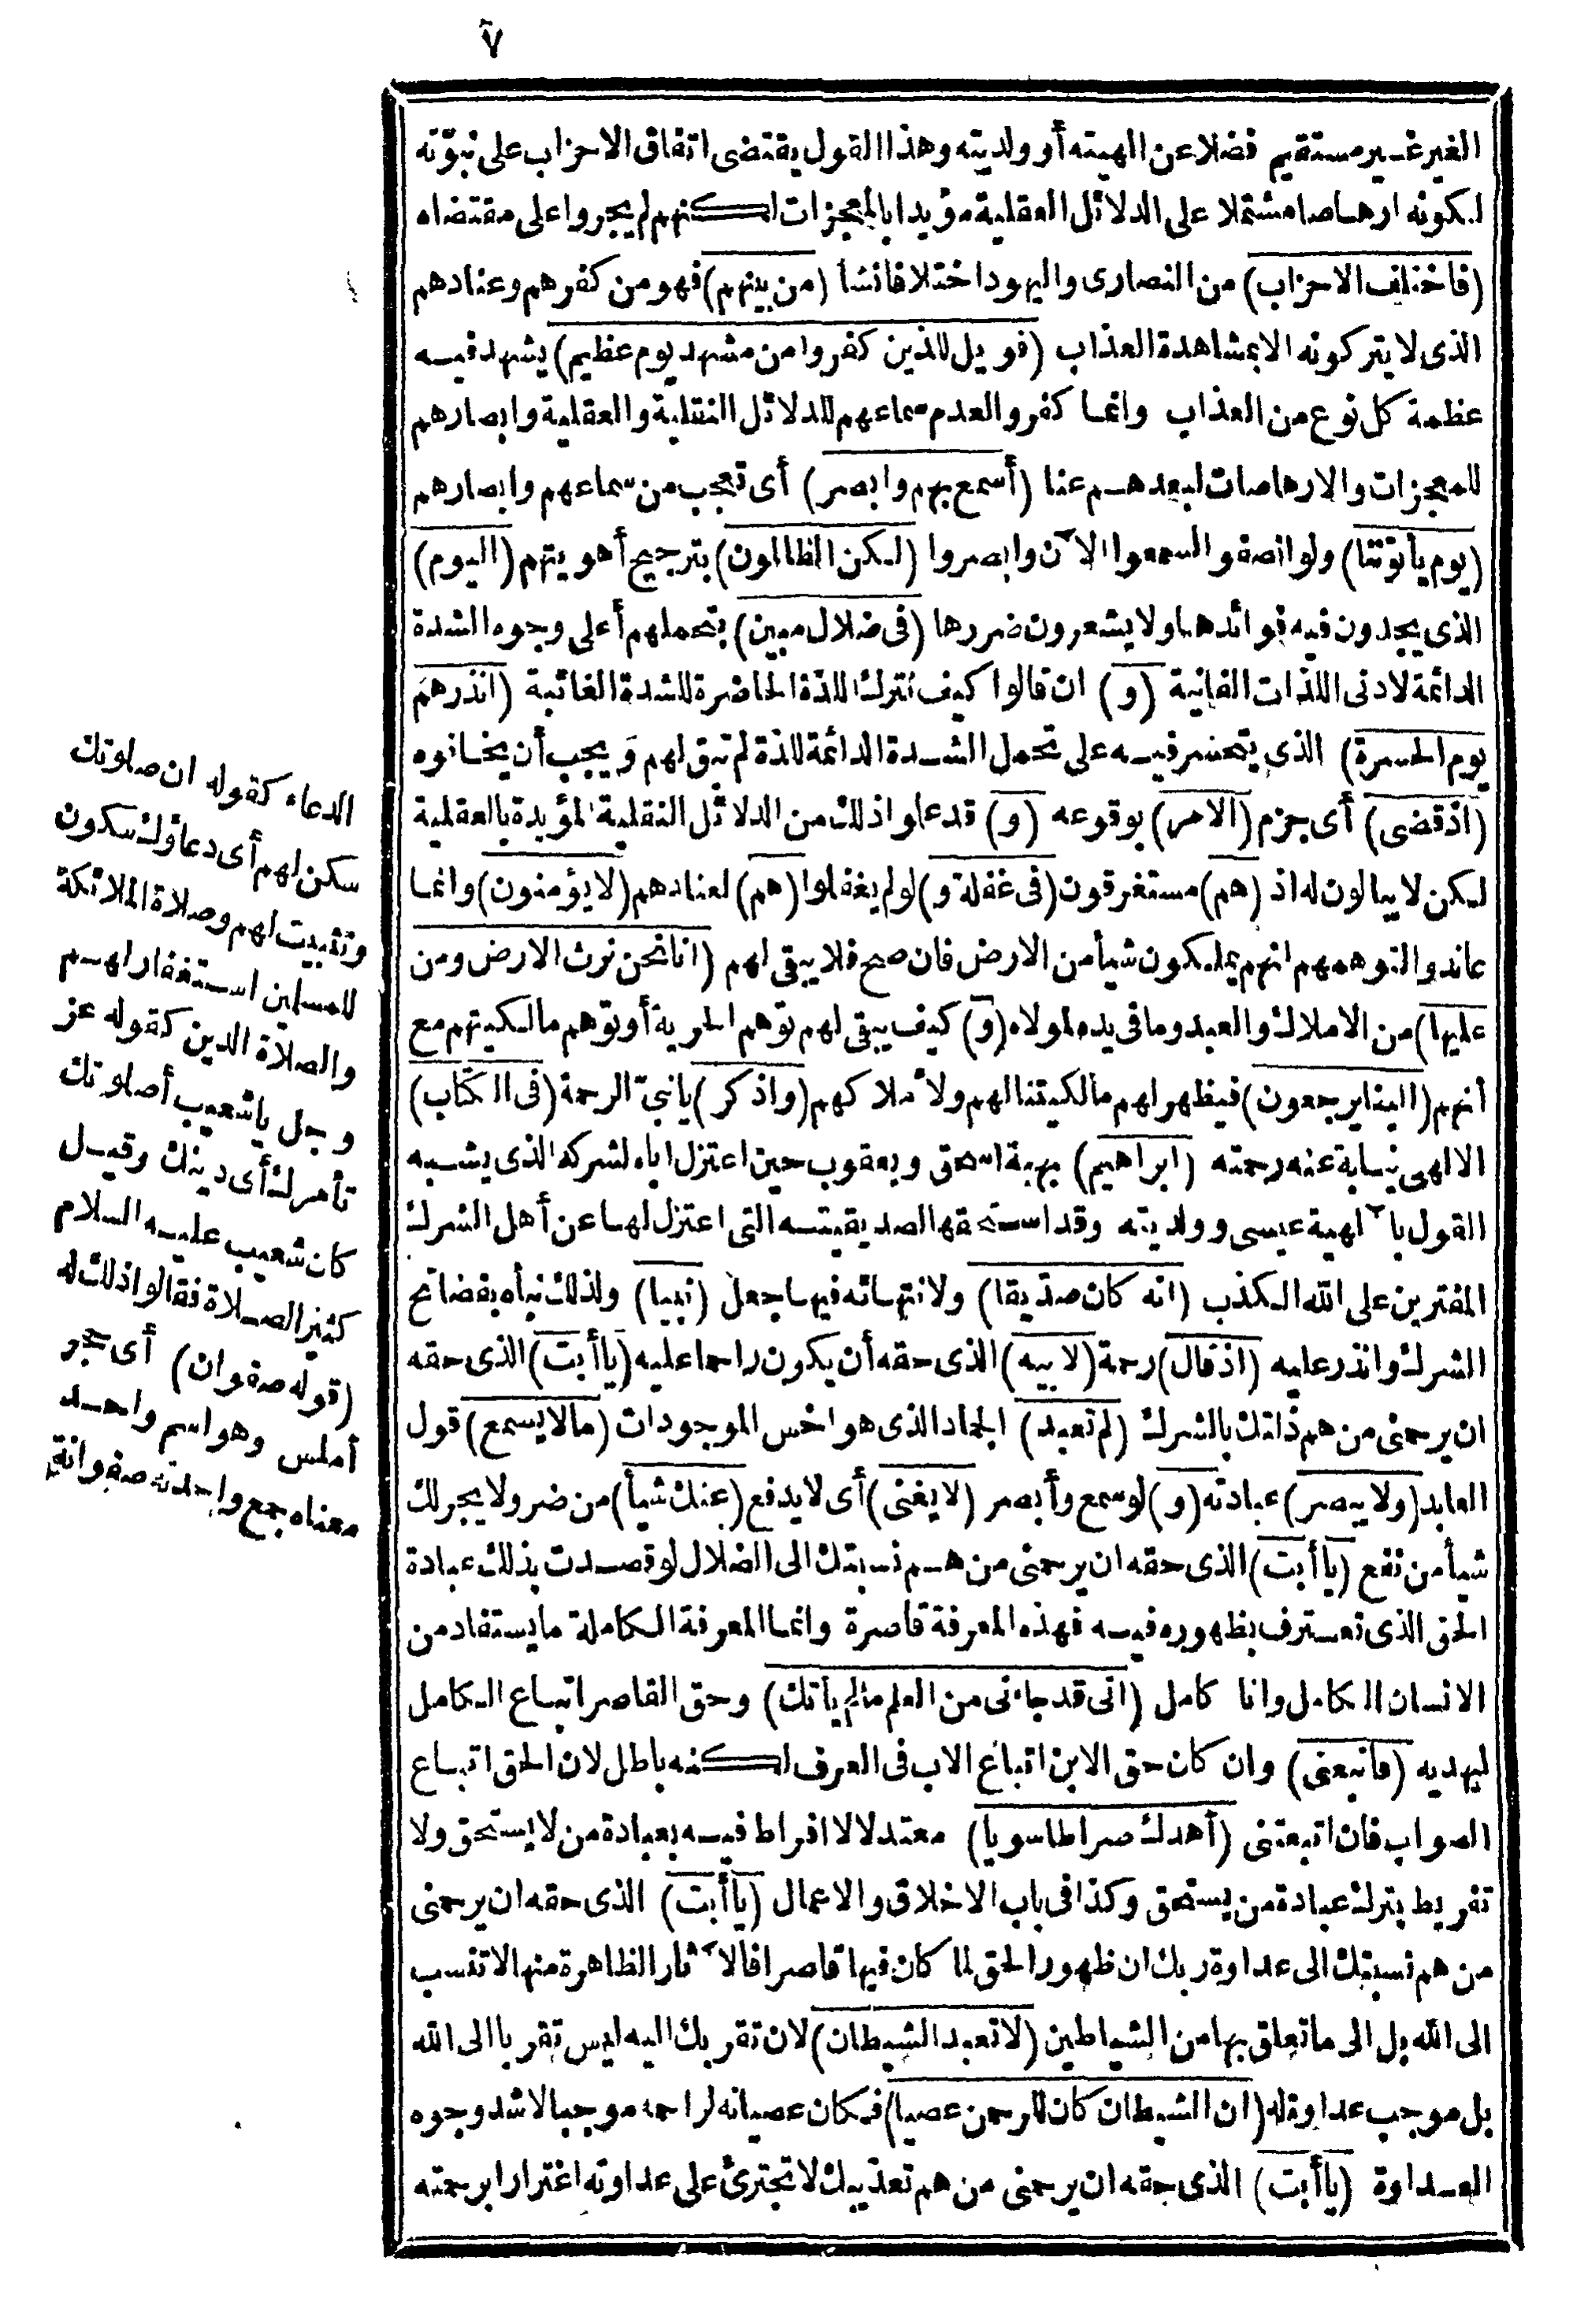 ٧
الغير غير مستقيم فضلا عن الهيته أو ولديته وهذا القول يقتضى اتفاق الاحزاب على نبوّته
لكونه ارهاصا مشتملا على الدلائل العقلية مؤيدا بالمعجزات لكنهم لم يجروا على مقتضاه
(فاختلف الاحزاب) من النصارى واليهود اختلافا نشأ (من بينهم) فهو من كفرهم وعنادهم
الذى لا يتركونه الا بمشاهدة العذاب (فويل للذين كفروا من مشهد يوم عظيم) يشهد فيه
عظمة كل نوع من العذاب وانما كفروا لعدم سماعهم للدلائل النقلية والعقلية وابصارهم
للمعجزات والارهاصات لبعدهم عنا (أسمع بهم وابصر) أى تعجب من سماعهم وابصارهم
(يوم يأتوننا) ولو انصفوا لسمعوا الآن وابصروا (لكن الظالمون) بترجيح أهويتهم (اليوم)
الذى يجدون فيه فوائدها ولا يشعرون ضررها (فى ضلال مبين) بتحملهم أعلى وجوه الشدة
الدائمة لادنى اللذات الفانية (و) ان قالوا كيف نترك اللذة الحاضرة للشدة الغائبة (انذرهم
يوم الحسرة) الذى يتحسر فيه على تحمل الشدة الدائمة للذة لم تبق لهم ويجب أن يخافوه
(اذ قضى) أى جزم (الامر) بوقوعه (و) قد علوا ذلك من الدلائل النقلية المؤيدة بالعقلية
لكن لا يبالون له اذ (هم) مستغرقون (فى غفلة و) لو لم يغفلوا (هم) لعنادهم (لا يؤمنون) وانما
عاندوا لتوهمهم انهم يملكون شيأ من الارض فان صح فلا يبقى لهم (انا نحن نرث الارض ومن
عليها) من الاملاك والعبد وما فى يده لمولاه (و) كيف يبقى لهم توهم الحرية أو توهم مالكيتهم مع
أنهم (الينا يرجعون) فيظهر لهم مالكيتنا لهم ولأملاكهم (واذكر) يا نبىّ الرحمة (فى الكتاب)
الالهى نيابة عنه رحمته (ابراهيم) بهبة اسحق ويعقوب حين اعتزل اباه لشركه الذى يشبه
القول بآلهية عيسى وولديته وقد استحقها الصديقيته التى اعتزل لها عن أهل الشرك
المفترين على الله الكذب (انه كان صدّيقا) ولانتهائه فيها جعل (نبيا) ولذلك نبأه بفضائح
الشرك وانذر عليه (اذ قال) رحمة (لابيه) الذى حقه أن يكون راحما عليه (يا أبت) الذى حقه
ان يرحمنى من هم ذلتك بالشرك (لم تعبد) الجماد الذى هو اخس الموجودات (ما لا يسمع) قول
العابد (ولا يبصر) عبادته (و) لو سمع وأبصر (لا يغنى) أى لا يدفع (عنك شيأ) من ضر ولا يجر لك
شيأ من نفع (يا أبت) الذى حقه ان يرحمنى من هم نسبتك الى الضلال لو قصدت بذلك عبادة
الحق الذى تعترف بظهوره فيه فهذه المعرفة قاصرة وانما المعرفة الكاملة ما يستفاد من
الانسان الكامل وانا كامل (انى قد جاءنى من العلم ما لم يأتك) وحق القاصر اتباع الكامل
ليهديه (فاتبعنى) وان كان حق الابن اتباع الاب فى العرف لكنه باطل لان الحق اتباع
الصواب فان اتبعتنى (أهدك صراطا سويا) معتدلا لا افراط فيه بعبادة من لا يستحق ولا
تفريط بترك عبادة من يستحق وكذا فى باب الاخلاق والاعمال (يا أبت) الذى حقه ان يرحمنى
من هم نسبتك الى عداوة ربك ان ظهور الحق لما كان فيها قاصرا فالآثار الظاهرة منها لا تنسب
الى الله بل الى ما تعلق بها من الشياطين (لا تعبد الشيطان) لان تقربك اليه ليس تقربا الى الله
بل موجب عداوة له (ان الشيطان كان للرحمن عصيا) فكان عصيانه لراحمه موجبا لاشد وجوه
العداوة (يا أبت) الذى حقه ان يرحمنى من هم تعذيبك لا تجترئ على عداوته اغترارا برحمته
الدعاء كقوله ان صلوتك
سكن لهم أى دعاؤك سكون
وتثبيت لهم وصلاة الملائكة
للمسلمين استغفار لهم
والصلاة الدين كقوله عز
وجل يا شعيب أصلوتك
تأمرك أى دينك وقيل
كان شعيب عليه السلام
كثير الصلاة فقالوا ذلك له
(قوله صفوان) أى حجر
أملس وهو اسم واحد
معناه جمع واحدته صفوانة